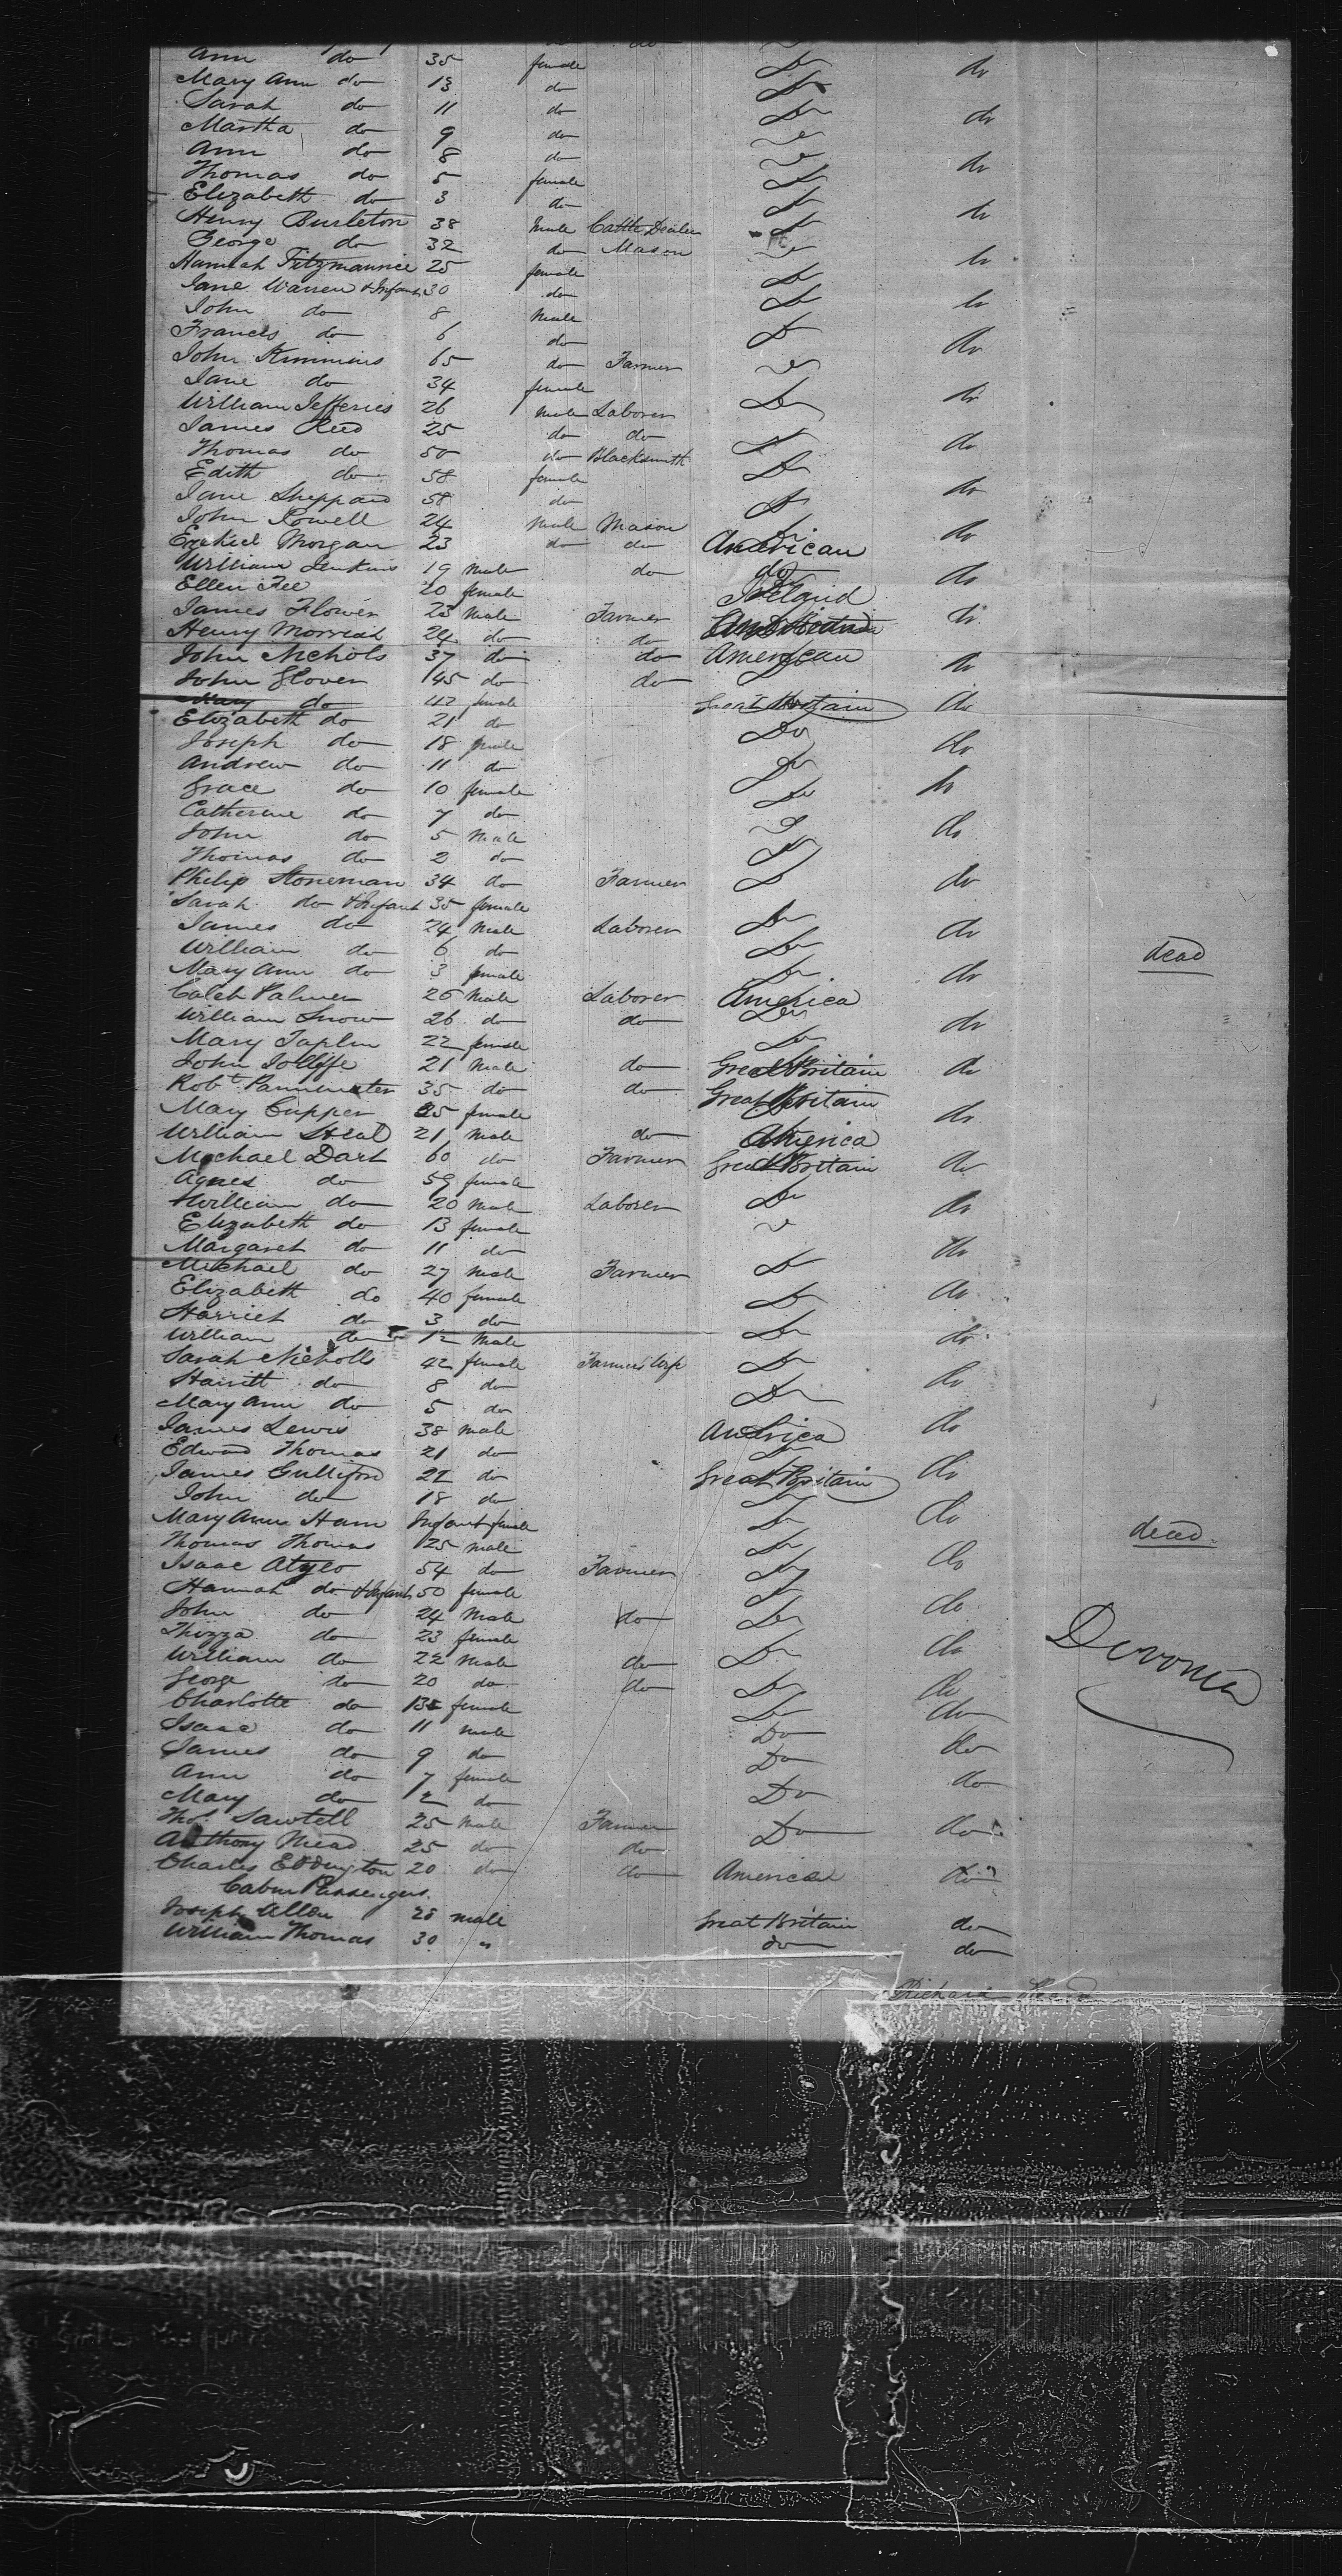 Ann do 35 female Do do
Mary Ann do 13 do Do
Sarah do 11 do Do do
Martha do 9 do Do
Ann do 8 do Do do
Thomas do 5 female Do
Elizabeth do 3 do Do do
Henry Burleton 38 Male Cattle Dealer Do
George do 32 do Mason Do do
Hannah Fitzmaurice 25 female Do
Jane Warren & Infant 30 do Do do
John do 8 Male
Frances do 6 do Do do
John Kimmins 65 do Farmer Do
Jane do 34 female do
William Jefferies 26 Male Laborer Do
James Reed 25 do do do
Thomas do 50 do Blacksmith Do
Edith do 58 female Do do
Jane Sheppard 58 do Do
John Powell 24 Male Mason Do do
Ezekiel Morgan 23 do do American
William Jenkins 19 Male do do do
Ellen Fee 20 female Ireland
James Flower 23 Male Farmer do
Henry 24 do do
John Nichols 37 do do American do
John Glover 45 do do
Mary do 42 female Great Britain do
Elizabeth do 21 do Do
Joseph do 18 male do
Andrew do 11 do Do
Grace do 10 female Do do
Catherine do 7 do Do
John do 5 Male do
Thomas do 2 do Do
Philip Stoneman 34 do Farmer Do do
Sarah do & Infant 35 female
James do 24 Male Laborer Do do
William do 6 do Do dead
Mary Ann do 3 female Do do
Caleb Palmer 26 Male Laborer America
William Snow 26 do do Do do
Mary Taplin 22 female Do
John Jolliffe 21 Male do Great Britain do
Robt Parmenter 35 do do Great Britain
Mary Cupper 25 female do
William Heal 21 Male do America
Michael Dart 60 do Farmer Great Britain do
Agnes do 59 female Do
William do 20 Male Laborer do
Elizabeth do 13 female Do
Margaret do 11 do do
Michael do 27 Male Farmer Do
Elizabeth do 40 female Do do
Harriet do 3 do Do
William do 12 Male do
Sarah Nicholls 42 female Farmers Wife Do
Harriett do 8 do Do do
Mary Ann do 5 do
James Lewis 38 Male America do
Edward Thomas 21 do Do
James Gulliford 22 do Great Britain do
John do 18 do Do
Mary Anne Ham Infant female Do do
Thomas Thomas 25 male Do dead
Isaac 54 do Farmer Do do
Hannah do & Infant 50 female Do
John do 24 Male do Do do
Thizza do 23 female
William do 22 Male do Do do
George do 20 do do Do do
Charlotte do 13 female Do do
Isaac do 11 male Do
James do 9 do Do do
Ann do 7 female do
Mary do 2 do Do
Thos Sawtell 25 Male Farmer Do do
Anthony Mead 25 do do
Charles Eddington 20 do do America do
Cabin Passengers
Joseph Allen 28 male Great Britain do
William Thomas 30 " do do
Devonia
Richard